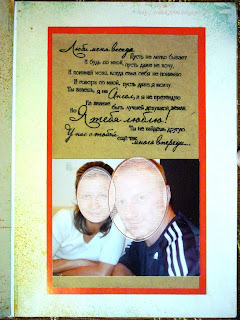 Люби меня всегда
Пусть не легко бывает
И будь со мной, пусть даже не хочу.
И понимай меня, когда сама себя не понимаю
И говори со мной, пусть даже я молчу.
Ты знаешь, я не Ангел, и не претендую
На звание быть лучшей девушкой земли.
Но Я тебя люблю!
Ты не найдёшь другую.
У нас с тобой ещё так много впереди...